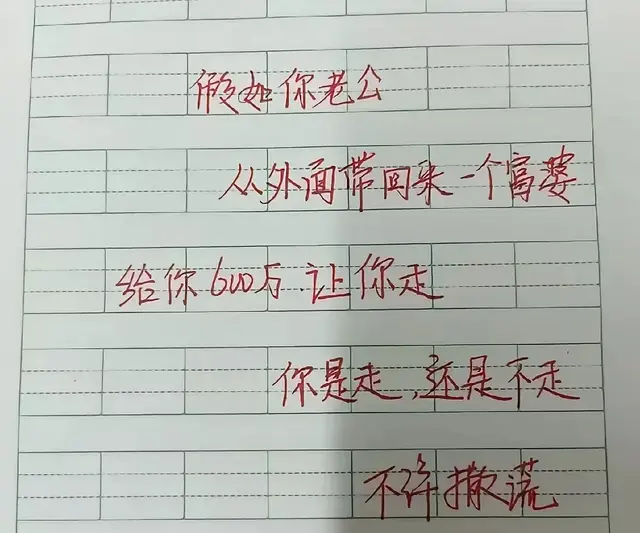 假如你老公
从外面带回来一个富婆
给你600万 让你走
你是走,还是不走
不许撒谎